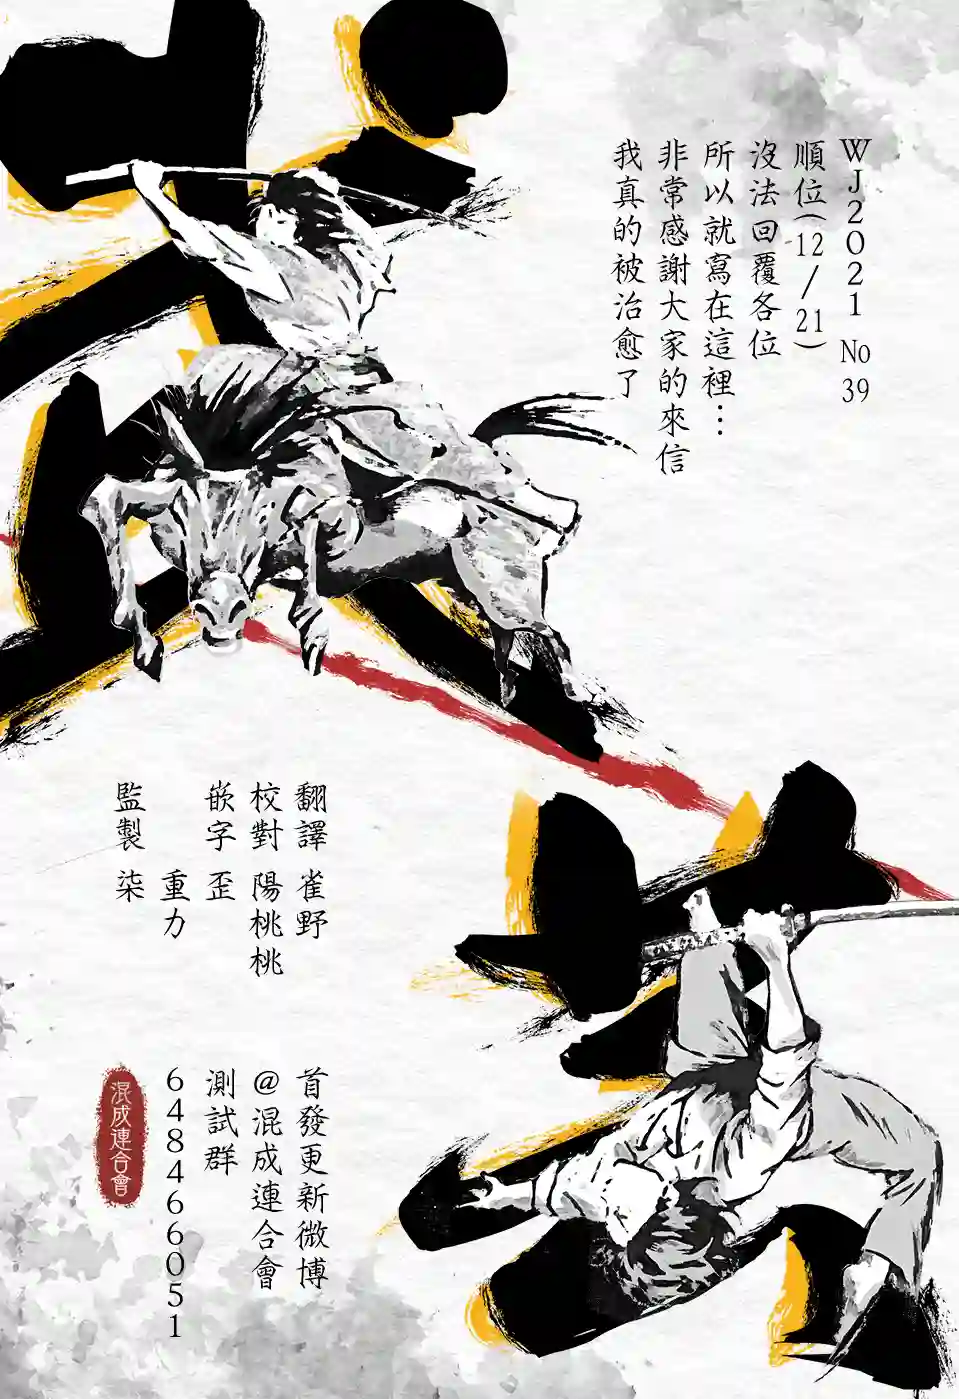 WJ2021 No 39
順位(12/21)
沒法回覆各位
所以就寫在這裡…
非常感謝大家的來信
我真的被治愈了
翻譯 雀野
校對 陽桃桃
嵌字 歪
重力
監製 柒
首發更新微博
@混成連合會
測試群
648466051
混成連合會